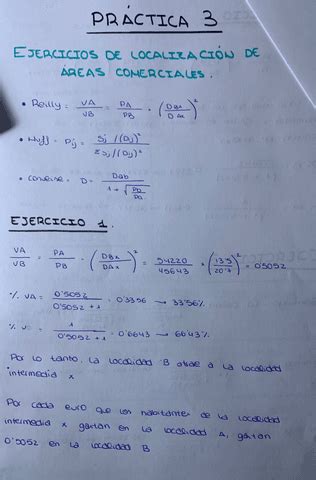 PRÁCTICA 3
EJERCICIOS DE LOCALIZACIÓN DE
ÁREAS COMERCIALES.
• Reilly = VA/VB = PA/PB · (DBx/DAx)²
• Huff = Pij = Sj/(Dij)² / Σ Sj/(Dij)²
• Converse = D = Dab / 1 + √(Pb/Pa)
EJERCICIO 1.
VA/VB = PA/PB · (DBx/DAx)² = 54220/45643 × (13'5/20'7)² = 0'5052
% VA = 0'5052 / 0'5052 + 1 = 0'3356 → 33'56%
% V = 1 / 0'5052 + 1 = 0'6643 → 66'43%
Por lo tanto, la localidad B atrae a la localidad
intermedia x
Por cada euro que los habitantes de la localidad
intermedia x gastan en la localidad A, gastan
0'5052 en la localidad B